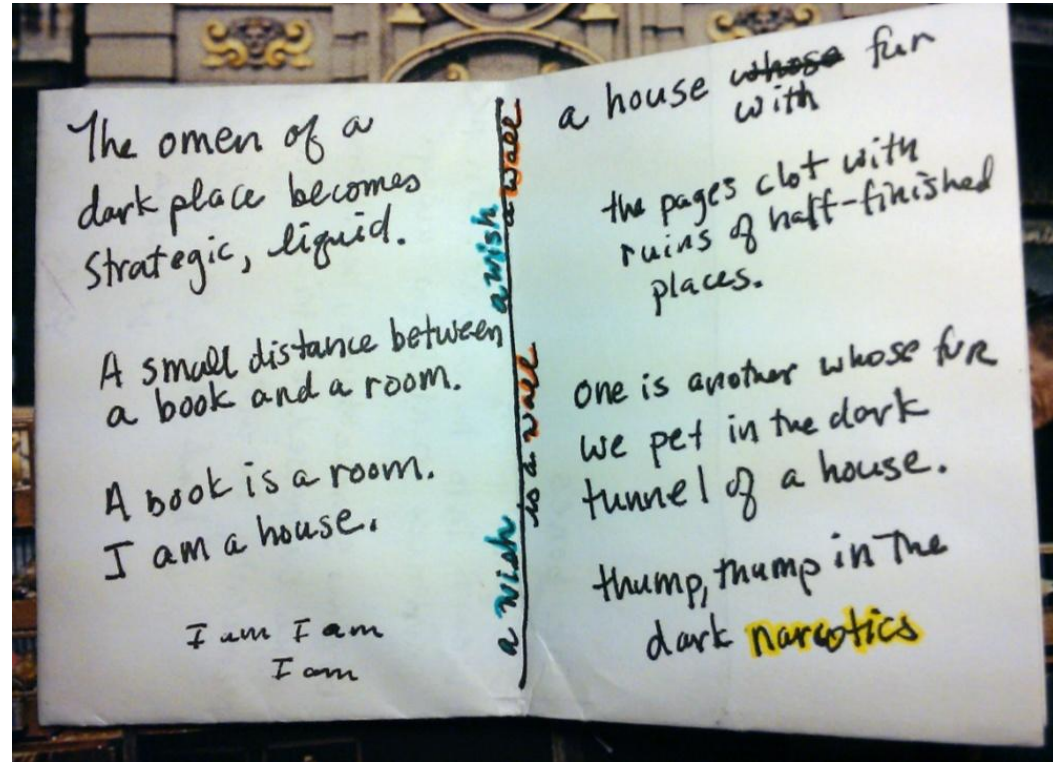 The omen of a
dark place becomes
strategic, liquid.
A small distance between
a book and a room.
A book is a room.
I am a house.
I am I am
I am
a wish
is a wall
a wish
a wall
a house whose fur
with
the pages clot with
ruins of half-finished
places.
one is another whose fur
we pet in the dark
tunnel of a house.
thump, thump in the
dark narcotics